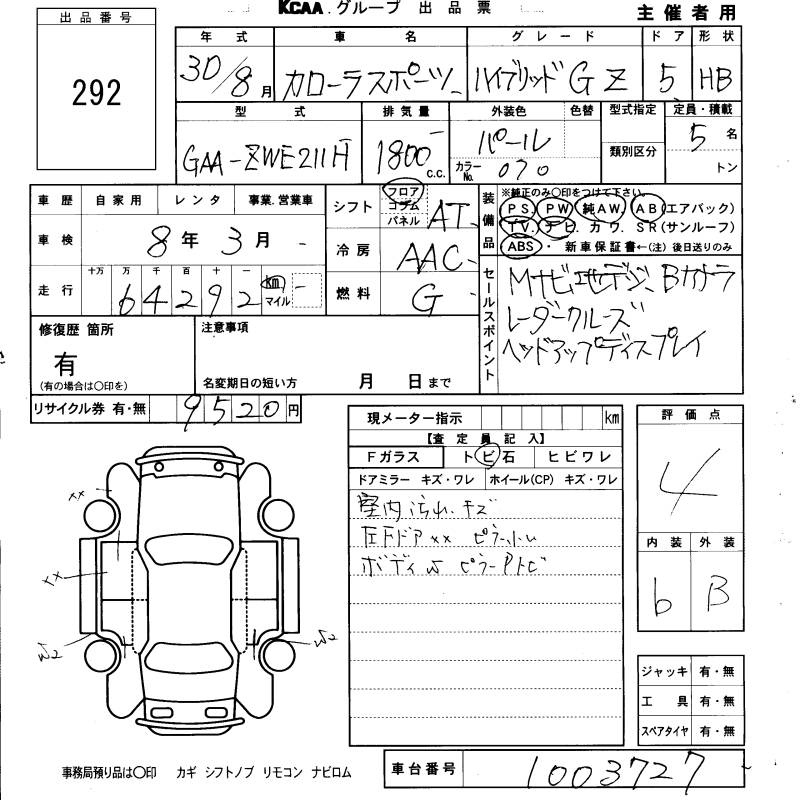 KCAA.グループ 出品票 主催者用
出品番号
292
年式 車名 グレード ドア 形状
30/8月 カローラスポーツ ハイブリッドGZ 5 HB
型式 排気量 外装色 色替 型式指定 定員・積載
GAA-ZWE211H 1800c.c. パール 類別区分 5名
カラーNo. 070 トン
車歴 自家用 レンタ 事業.営業車 シフト フロア コラム パネル AT 装備品 ※純正のみ○印をつけて下さい。
PS. PW. 純AW. AB(エアバック)
TV. ナビ. カワ. SR(サンルーフ)
車検 8年 3月 冷房 AAC ABS・ 新車保証書←(注) 後日送りのみ
走行 十万 万 千 百 十 一 km マイル 燃料 G
64292
セールスポイント Mナビ地デジ、Bカメラ
レーダークルーズ
ヘッドアップディスプレイ
修復歴 箇所 注意事項
有
(有の場合は○印を) 名変期日の短い方 月 日まで
リサイクル券 有・無 9520円
現メーター指示 km 評価点
【査定員記入】
Fガラス トビ石 ヒビワレ 4
ドアミラー キズ・ワレ ホイール(CP) キズ・ワレ
室内汚れ.キズ
左Fドアxx ピラー
ボディ ピラーPトビ
内装 外装
b B
xx
xx
W2 W2
ジャッキ 有・無
工具 有・無
スペアタイヤ 有・無
事務局預り品は○印 カギ シフトノブ リモコン ナビロム 車台番号 1003727